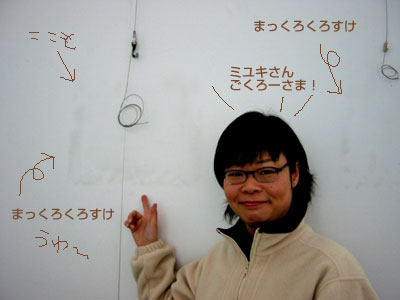 ここも
まっくろくろすけ
ミユキさん
ごくろーさま！
まっくろくろすけ
うわ〜